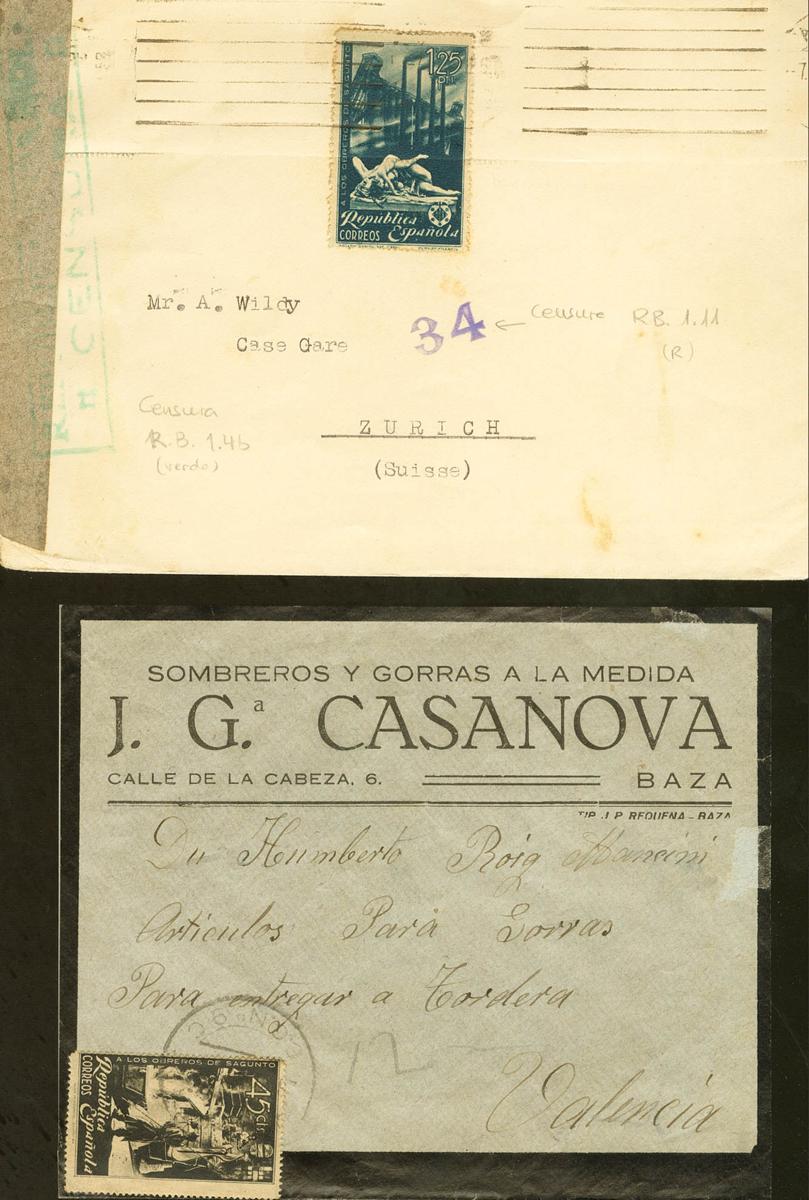 A LOS OBREROS DE SAGUNTO
1'25
PTS.
República
Española
CORREOS
CENSURA
Mr. A. Wildy
Case Gare
34 ← Censura R.B. 1.11
(R)
Censura
R.B. 1.4b
(verde)
ZURICH
(Suisse)
SOMBREROS Y GORRAS A LA MEDIDA
J. G.ª CASANOVA
CALLE DE LA CABEZA, 6. BAZA
TIP. J. P. REQUENA - BAZA
Humberto Roig Mancini
Articulos Para Gorras
Para entregar a Tordera
12
Valencia
A LOS OBREROS DE SAGUNTO
45 cts
República
Española
CORREOS